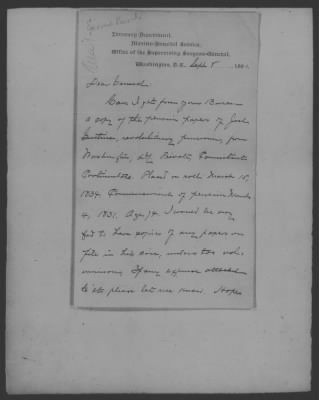 Treasury Department,
Marine-Hospital Service,
Office of the Supervising Surgeon-General,
Washington, D.C. Sept 8 189
Dear General:
Can I get from your Bureau
a copy of the pension papers of Joel
revolutionary pensioner, from
Washington, Connecticut
Continentals. Placed on roll March 18,
1834. Commencement of pension March
4, 1831. Age 74. I would be very
glad to have copies of any papers on
file in his case, unless too volu-
minous. If any expense attached
to it please let me know. Hope